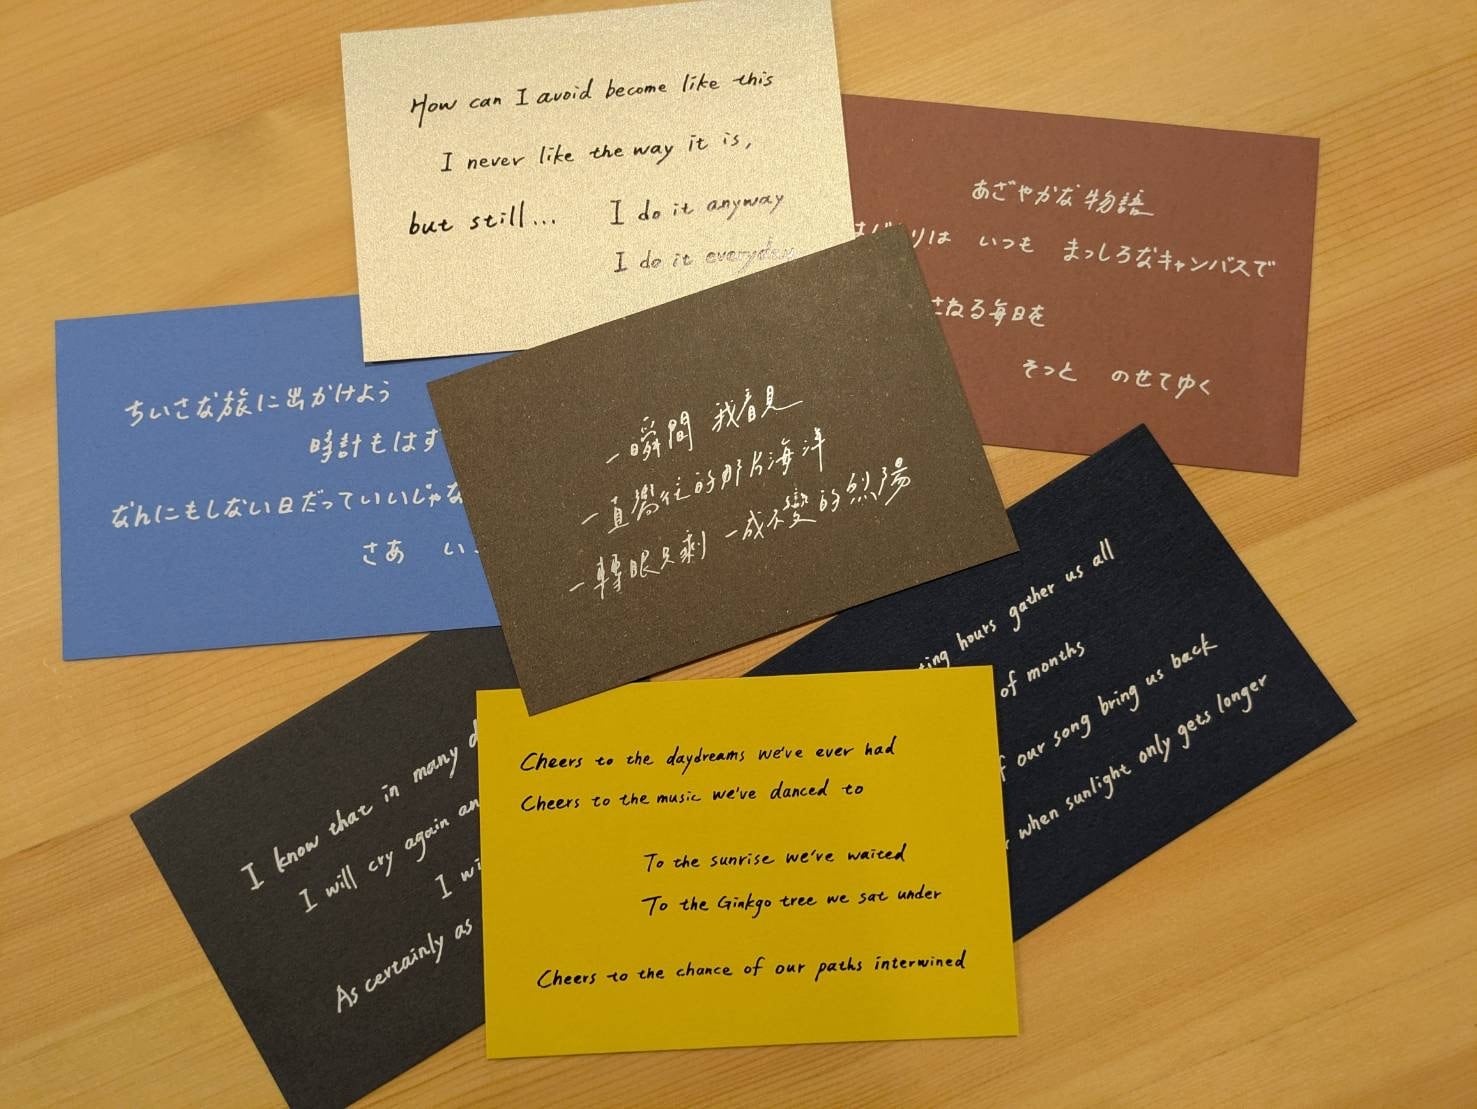 How can I avoid become like this
I never like the way it is,
but still... I do it anyway
I do it everyday
あざやかな物語
はじまりは いつも まっしろなキャンバスで
さねる毎日を
そっと のせてゆく
ちいさな旅に出かけよう
時計もはず
なんにもしない日だっていいじゃな
さあ い
一瞬間 我看見
一直嚮往的那片海洋
一轉眼只剩 一成不變的烈陽
ting hours gather us all
of months
f our song bring us back
when sunlight only gets longer
I know that in many d
I will cry again an
I wi
As certainly as
Cheers to the daydreams we've ever had
Cheers to the music we've danced to
To the sunrise we've waited
To the Ginkgo tree we sat under
Cheers to the chance of our paths interwined